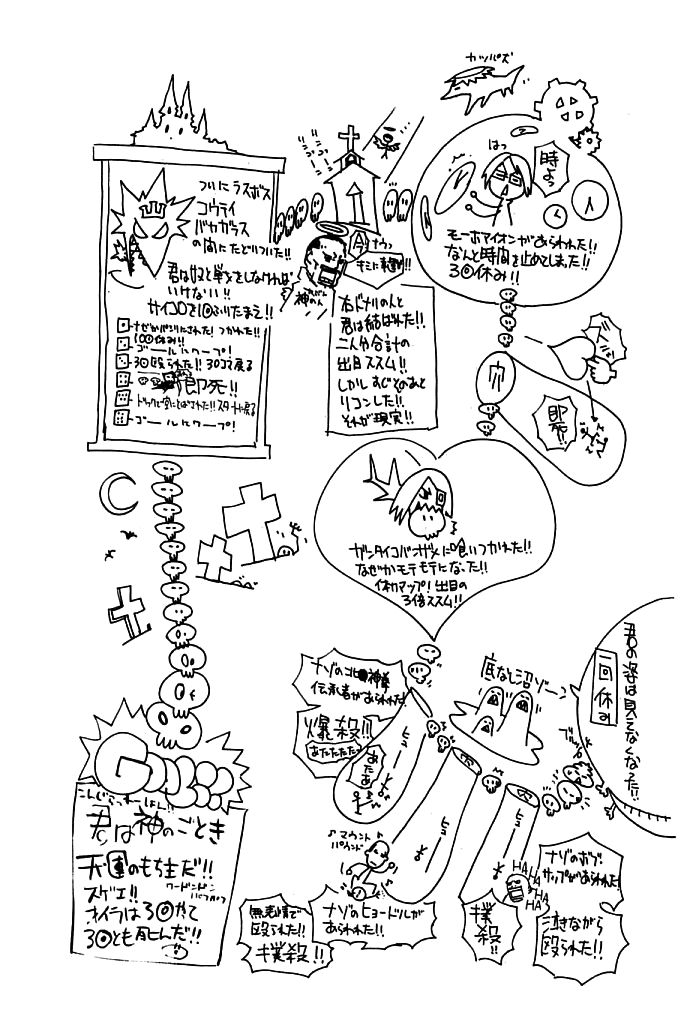 カッパズ
はっ
時よっ
モーホマイオンがあらわれた!!
なんと時間を止めてしまった!!
3回休み!!
穴
即死!!
ついにラスボス
コウテイ
バヤガラス
の間にたどりついた!!
君は奴と戦をしなければ
いけない!!
サイコロを1回ふりたまえ!!
100回休み!!
ゴールにワープ!
3回殴られた!! 30コマ戻る
即死!!
ゴールにワープ!
神のん
右ドナリのんと
君は結ばれた!!
二人分合計の
出目ススム!!
しかしすじとのあと
リコンした!!
それが現実!!
ガンタイコバンガメに喰いつかれた!!
なぜかモテモテになった!!
体力マップ! 出目の
3倍ススム!!
君の姿は見えなくなった!!
一回休み
底なし沼ゾ〜
ナゾの北神拳
伝承者があらわれた!
爆殺!!
あたたたた
あたあ
ヒューー
ヒューー
ヒューー
ブルッ
♪マウント
パウンド♪
ナゾのヒョードルが
あらわれた!!
無表情で
殴られた!!
撲殺!!
撲殺!!
ナゾのボブ・
サップがあらわれた!
HAHA
HA
HA
HA
泣きながら
殴られた!!
GOAL
こんぐらっちれーしょん!!
君は神のごとき
天運のもち主だ!!
スゲエ!!
オイラは3回やって
3回とも死んだ!!